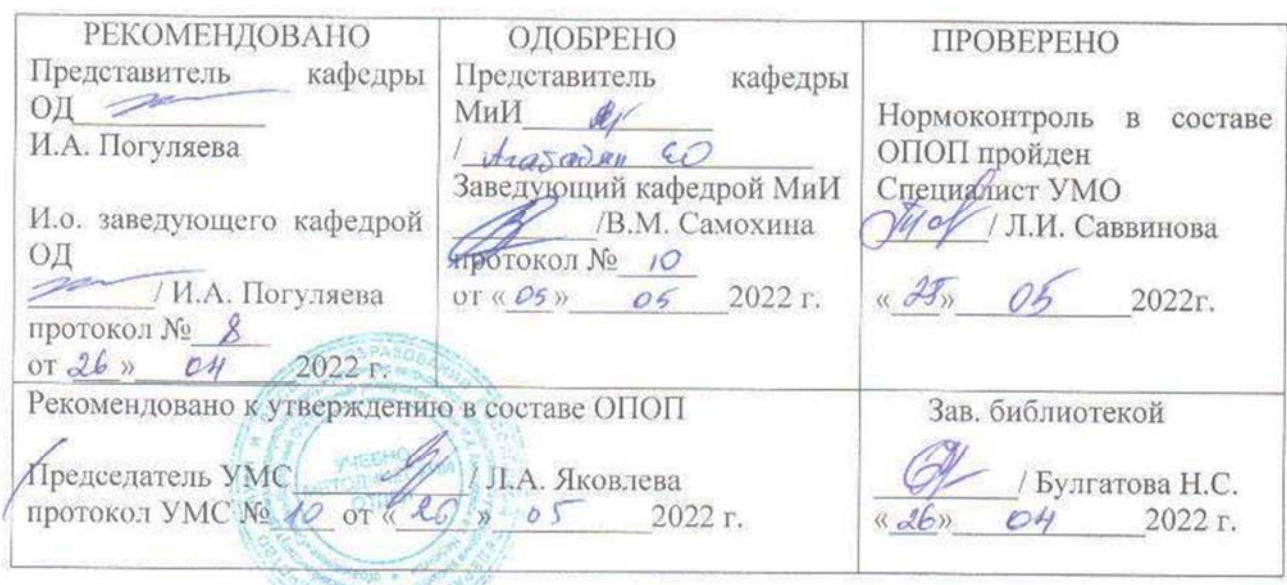 РЕКОМЕНДОВАНО
Представитель кафедры
ОД
И.А. Погуляева
И.о. заведующего кафедрой
ОД
/ И.А. Погуляева
протокол № 8
от 26 » 04 2022 г.
ОДОБРЕНО
Представитель кафедры
МиИ
/
Заведующий кафедрой МиИ
/В.М. Самохина
протокол № 10
от « 05 » 05 2022 г.
ПРОВЕРЕНО
Нормоконтроль в составе
ОПОП пройден
Специалист УМО
/ Л.И. Саввинова
« » 05 2022г.
Рекомендовано к утверждению в составе ОПОП
Председатель УМС / Л.А. Яковлева
протокол УМС № 10 от « 26 » 05 2022 г.
Зав. библиотекой
/ Булгатова Н.С.
« 26» 04 2022 г.